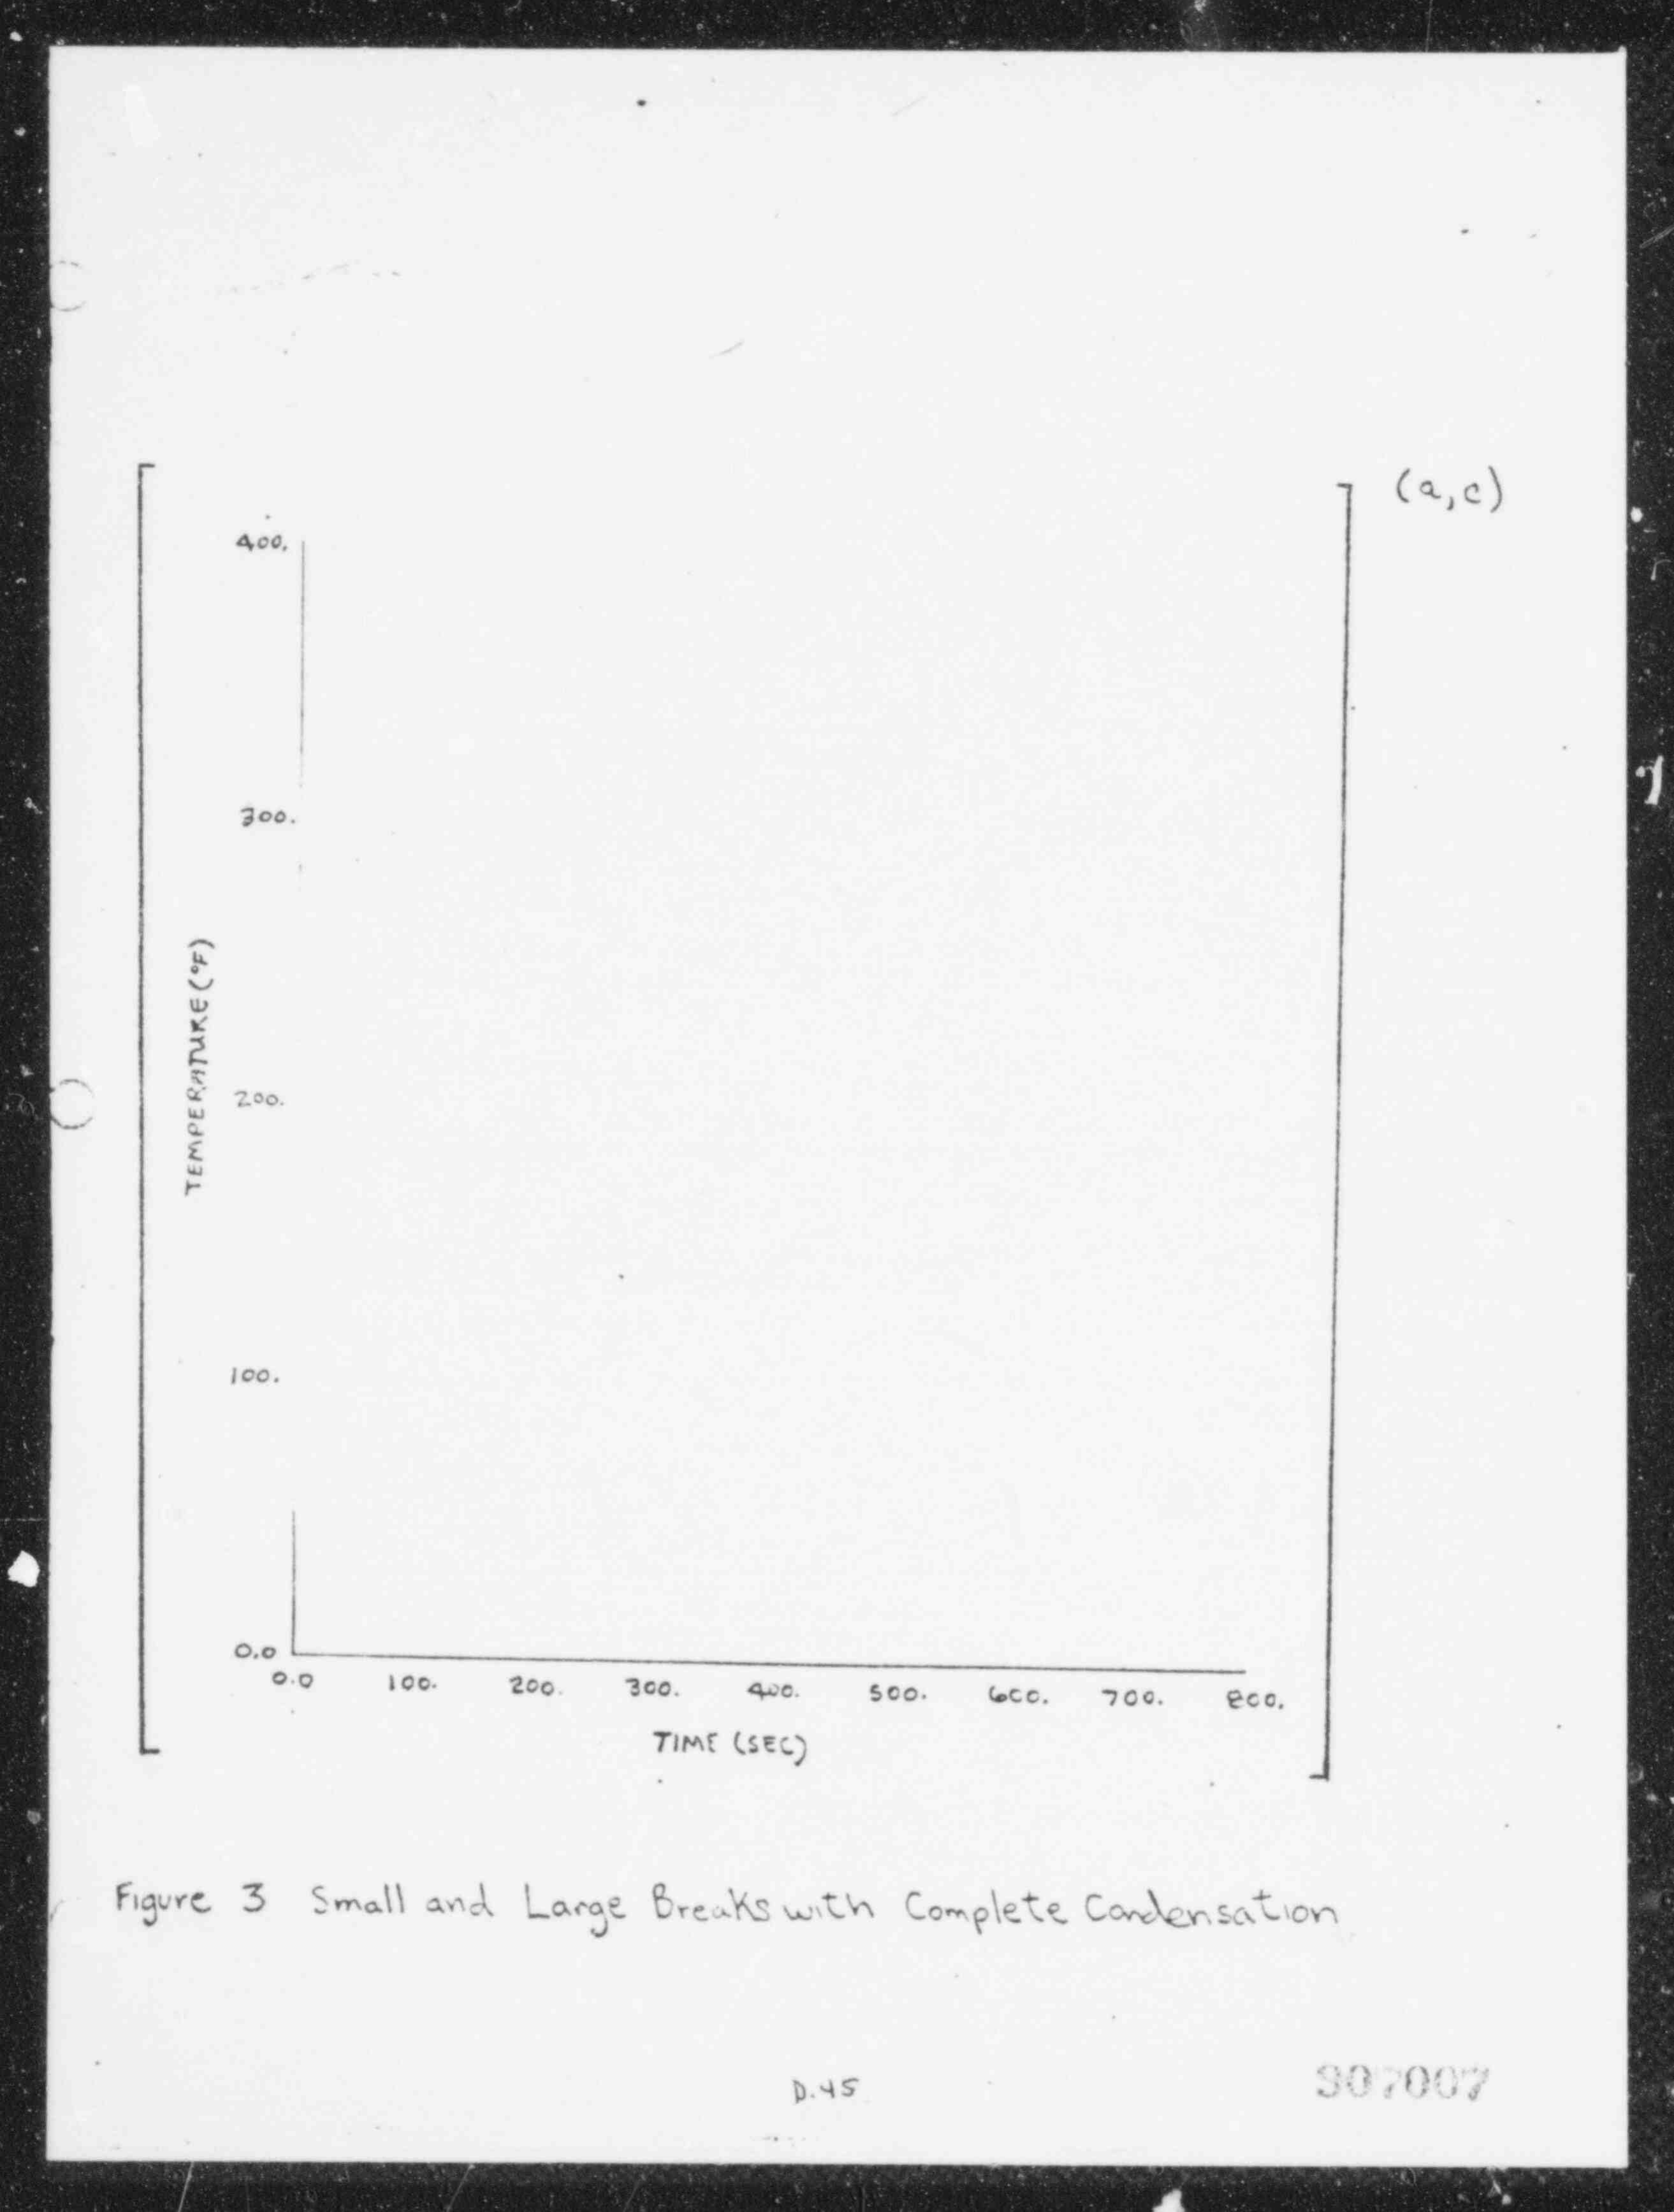 (a,c)
400.
300.
TEMPERATURE (°F)
200.
100.
0.0
0.0 100. 200. 300. 400. 500. 600. 700. 800.
TIME (SEC)
Figure 3 Small and Large Breaks with Complete Condensation
D.45
907007